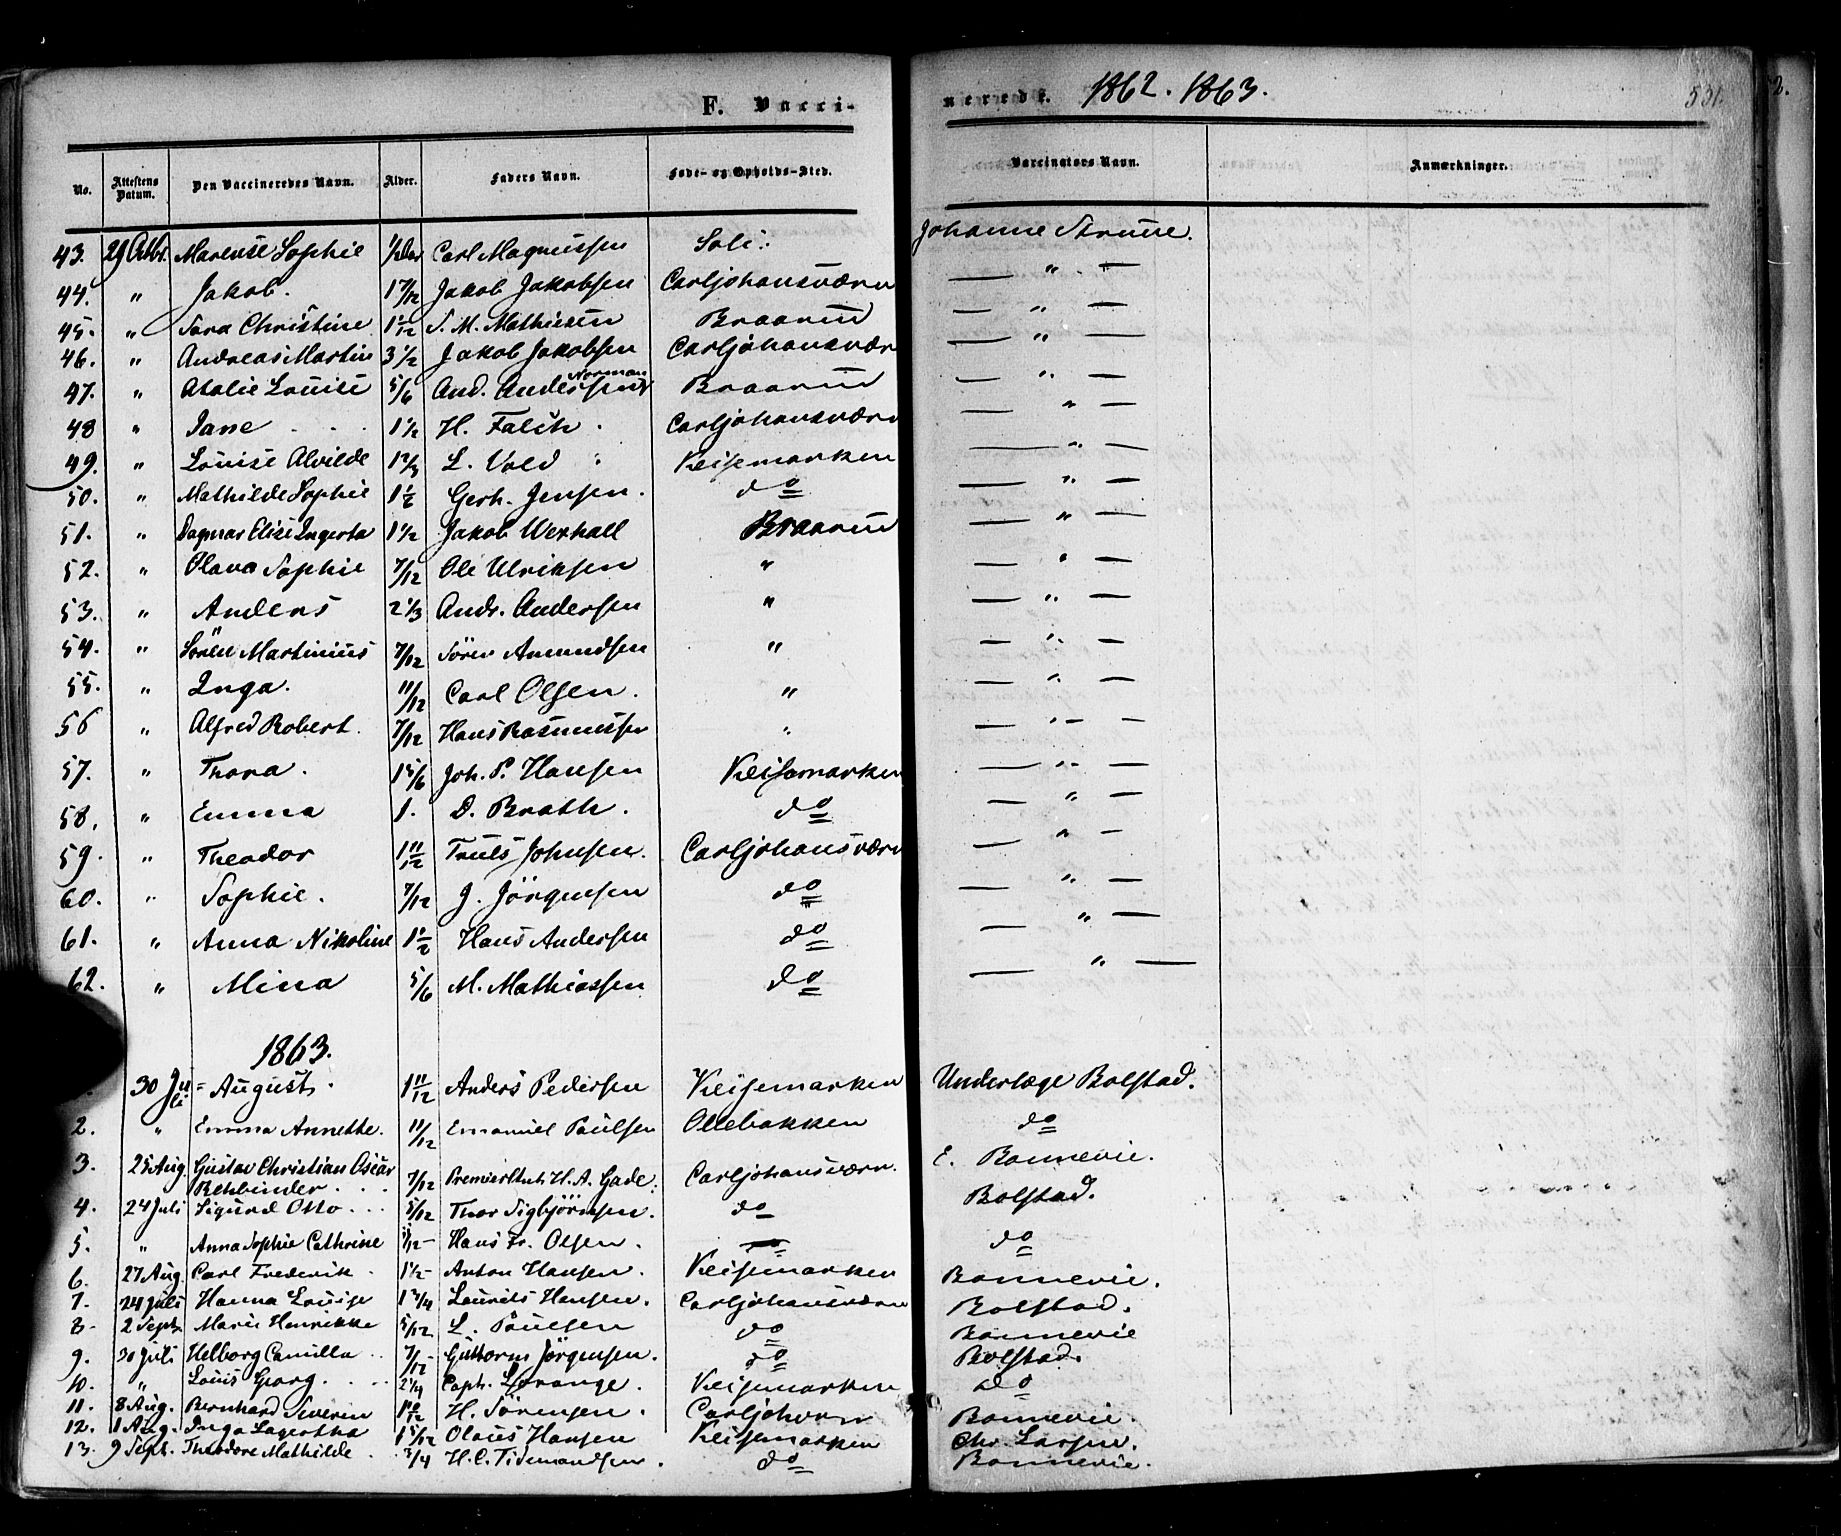 F. Vacci-
nerede. 1862. 1863.
531.
No. | Attestens Datum. | Den Vaccineredes Navn. | Alder. | Faders Navn. | Føde- og Opholds-Sted. | Vaccinators Navn. | Anmærkninger.
43. 29 Octbr. Marense Sophie Carl Magnussen Soli: Johanne Struve.
44. " Jakob. 1 7/12 Jakob Jakobsen Carljohansværn — " —
45. " Sara Christine 1 1/12 S. M. Mathiesen Braarud — " —
46. " Andreas Martin 3 1/2 Jakob Jakobsen Carljohansværn — " —
47. " Atalie Louise 5/6 And. Anderssen Norman Braarud — " —
48 " Jane 1 1/2 H. Falch. Carljohansværn — " —
49. " Louise Alvilde 1 2/3 L. Vold Keisemarken — " —
50. " Mathilde Sophie 1 1/2 Gerh. Jensen. do — " —
51. " Dagmar Elise Ingerta 1 1/2 Jakob Wexhall Braarud — " —
52. " Olava Sophie 7/12 Ole Ulriksen " — " —
53. " Anders 2 1/3 Andr. Andersen " — " —
54. " Sören Martinius 7/12 Sören Amundsen " — " —
55. " Inga. 11/12 Carl Olsen. " — " —
56 " Alfred Robert. 7/12 Hans Rasmussen " — " —
57. " Thora. 1 5/6 Joh. P. Hansen Keisemarken — " —
58. " Emma 1. D. Brath. do — " —
59. " Theodor 1 11/12 Truls Johnsen. Carljohansværn — " —
60. " Sophie. 7/12 J. Jörgensen do — " —
61. " Anna Nikoline 1 1/2 Hans Andersen do — " —
62. " Mina 5/6 M. Mathiassen do — " —
1863.
30 Juli August. 1 11/12 Anders Pedersen Keisemarken Underlæge Bolstad.
2. " Emma Annette. 11/12 Emanuel Paulsen Ollebakken do
3. 25 Aug. Gustav Christian Oscar Rehbinder 7/12 H. A. Gade. Carljohansværn. E. Bonnevie.
4. 24 Juli Sigurd Otto 5/12 Thor Sigbjörnsen. do Bolstad.
5. " Anna Sophie Cathrine Hans Fr. Olsen. do do
6. 27 Aug. Carl Frederik 1 1/2 Anton Hansen. Keisemarken Bonnevie.
7. 24 Juli Hanna Louise 1 3/4 Laurits Hansen. Carljohansværn Bolstad.
8 2 Sept. Marie Henrikke 5/12 L. Paulsen do Bonnevie
9. 30 Juli Helborg Camilla 7/12 Guttorm Jörgensen. do Bolstad.
10. " Louis Georg. 2 1/4 Capt. Lorange. Keisemarken do
11. 8 Aug. Bernhard Severin H. Sörensen. Carljohvern Bonnevie.
12. 1 Aug. Inga Lagertha 1 5/12 Olaus Hansen Keisemarken Chr. Larsen.
13. 9 Sept. Theodore Mathilde 3/4 H. C. Tidemandsen. do Bonnevie.